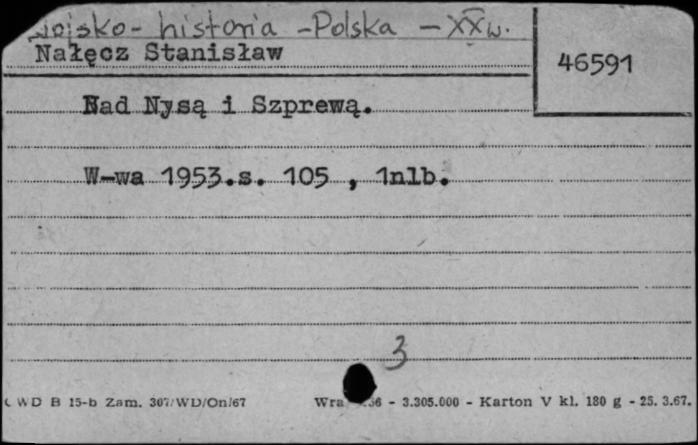 Wojsko - historia - Polska - XXw.
Nałęcz Stanisław
46591
Nad Nysą i Szprewą.
W-wa 1953.s. 105 , 1nlb.
3
CWD B 15-b Zam. 307/WD/On/67 Wra 56 - 3.305.000 - Karton V kl. 180 g - 25. 3.67.